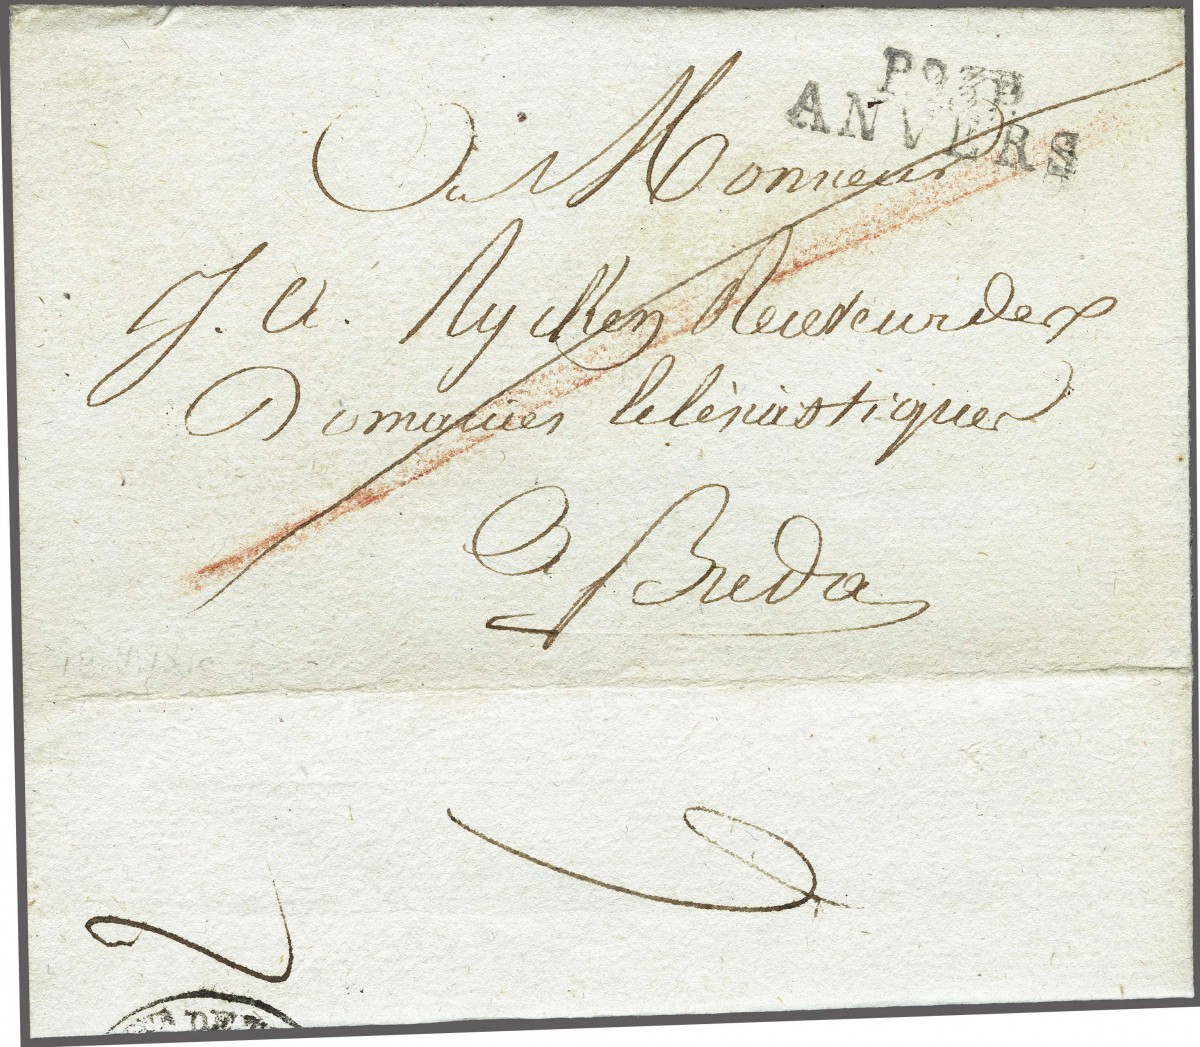 P.93.P.
ANVERS
a Monsieur
J. A. Rycken Receveur des
Domaines Eclésiastiques
a Breda
DE